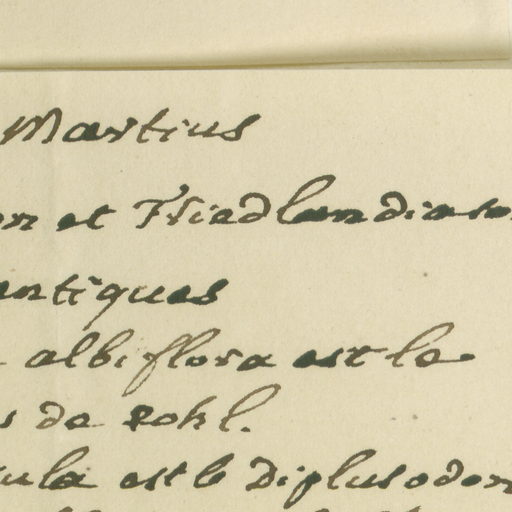 Martius
et Friedlandia
antiques
albiflora est le
de Pohl.
est le Diplusodon